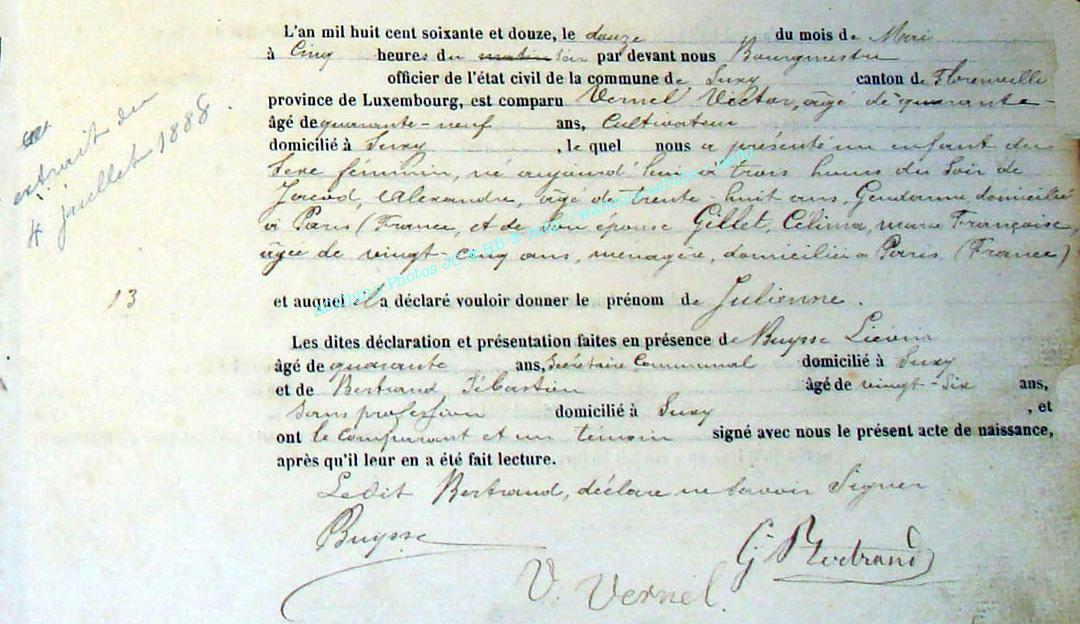 L'an mil huit cent soixante et douze, le douze du mois de Mai
à Cinq heures du matin Soir par devant nous Bourgmestre
officier de l'état civil de la commune de Suxy canton de Florenville
province de Luxembourg, est comparu Vernel Victor, âgé de quarante-
âgé de quarante-neuf ans, Cultivateur
domicilié à Suxy, le quel nous a présenté un enfant du
Sexe féminin, né aujourd'hui à trois heures du Soir de
Jacod, Alexandre, âgé de trente-huit ans, Gendarme, domicilié
à Paris (France, et de Son épouse Gillet, Célina, marie Françoise,
âgée de vingt-cinq ans, ménagère, domiciliée à Paris. (France)
et auquel il a déclaré vouloir donner le prénom de Julienne.
Les dites déclaration et présentation faites en présence de Buysse Liévin
âgé de quarante ans, Secrétaire Communal domicilié à Suxy
et de Bertrand Sébastien âgé de vingt-Six ans,
Sans profession domicilié à Suxy, et
ont le comparant et un témoin signé avec nous le présent acte de naissance,
après qu'il leur en a été fait lecture.
Ledit Bertrand, déclare ne Savoir Signer
Buysse
G Bertrand
V. Vernel.
extrait du
4 juillet 1888.
13